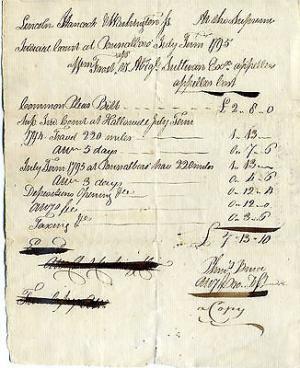 Lincoln Hancock & Washington ss At the Supreme
Judicial Court at Pownalboro' July Term 1795
Frost, ux. Abigl Sullivan Exx appellee
appellees Cost
Common Pleas Bill £ 2-8-0
Sup. Jud. Court at Hallowell July Term
1794. Travel 220 miles 1-13
att 5 days 0-7-6
July Term 1795 at Pownalboro' trav 220 miles 1-13
att 3 days 0-4-6
Deposition Opening fee 0-12-4
Atto fee 0-12-0
Taxing fee 0-3-6
£ 7-13-10
a Copy